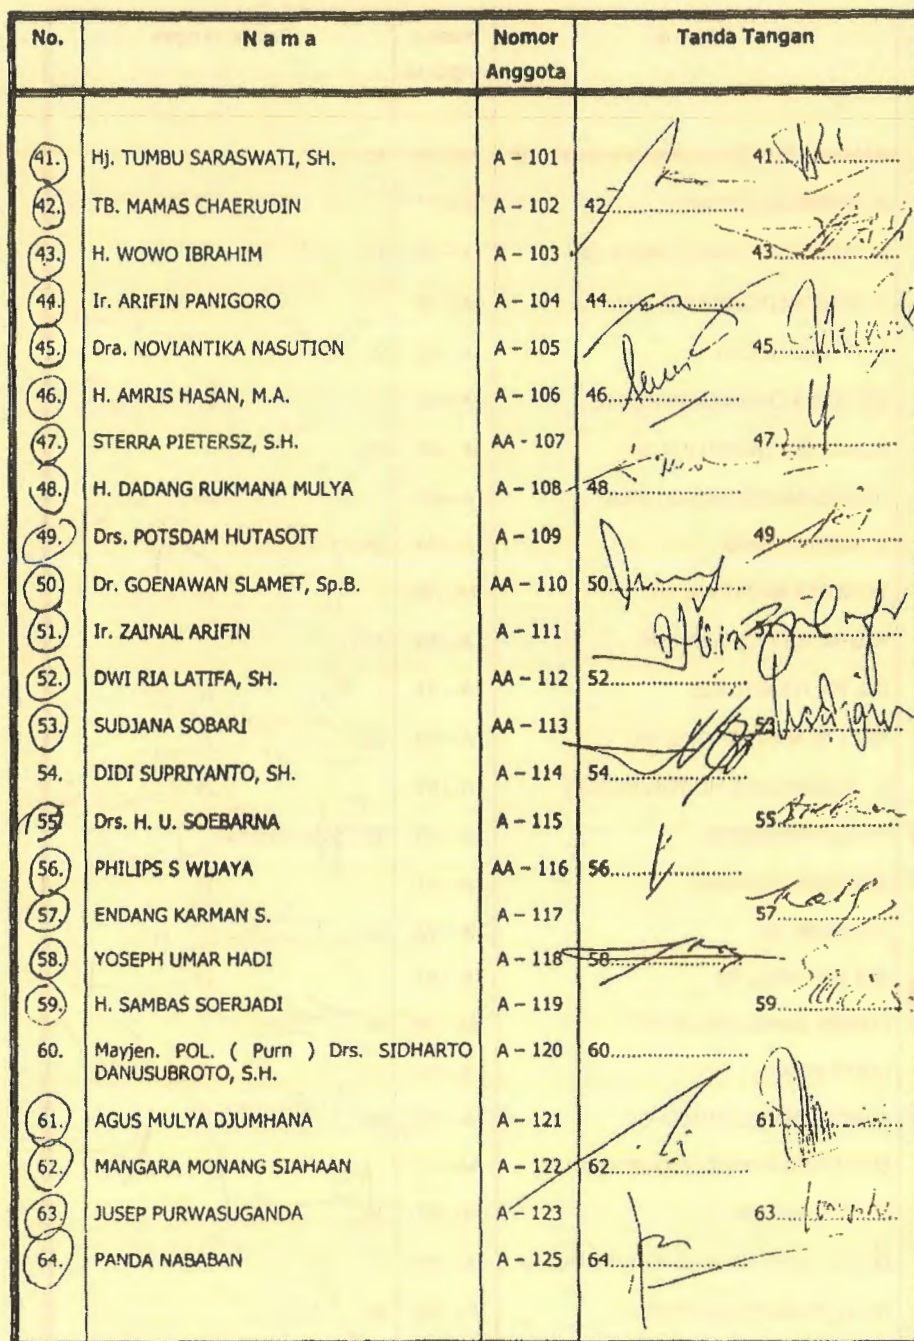 No. N a m a Nomor Anggota Tanda Tangan
41. Hj. TUMBU SARASWATI, SH. A – 101 41..................
42. TB. MAMAS CHAERUDIN A – 102 42..................
43. H. WOWO IBRAHIM A – 103 43..................
44. Ir. ARIFIN PANIGORO A – 104 44..................
45. Dra. NOVIANTIKA NASUTION A – 105 45..................
46. H. AMRIS HASAN, M.A. A – 106 46..................
47. STERRA PIETERSZ, S.H. AA - 107 47..................
48. H. DADANG RUKMANA MULYA A – 108 48..................
49. Drs. POTSDAM HUTASOIT A – 109 49..................
50. Dr. GOENAWAN SLAMET, Sp.B. AA – 110 50..................
51. Ir. ZAINAL ARIFIN A – 111 51..................
52. DWI RIA LATIFA, SH. AA – 112 52..................
53. SUDJANA SOBARI AA – 113 53..................
54. DIDI SUPRIYANTO, SH. A – 114 54..................
55. Drs. H. U. SOEBARNA A – 115 55..................
56. PHILIPS S WIJAYA AA – 116 56..................
57. ENDANG KARMAN S. A – 117 57..................
58. YOSEPH UMAR HADI A – 118 58..................
59. H. SAMBAS SOERJADI A – 119 59..................
60. Mayjen. POL. ( Purn ) Drs. SIDHARTO A – 120 60..................
DANUSUBROTO, S.H.
61. AGUS MULYA DJUMHANA A – 121 61..................
62. MANGARA MONANG SIAHAAN A – 122 62..................
63. JUSEP PURWASUGANDA A – 123 63..................
64. PANDA NABABAN A – 125 64..................